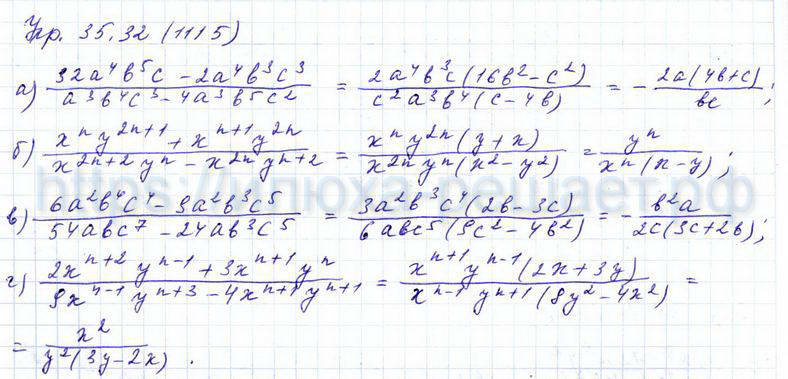 Упр. 35.32 (1115)
а) (32a⁴b⁵c − 2a⁴b³c³)/(a³b⁴c³ − 4a³b⁵c²) = (2a⁴b³c(16b² − c²))/(c²a³b⁴(c − 4b)) = − (2a(4b+c))/(bc);
б) (xⁿy²ⁿ⁺¹ + xⁿ⁺¹y²ⁿ)/(x²ⁿ⁺²yⁿ − x²ⁿyⁿ⁺²) = (xⁿy²ⁿ(y + x))/(x²ⁿyⁿ(x² − y²)) = yⁿ/(xⁿ(x − y));
https://илюха-решает.рф
в) (6a²b⁴c⁴ − 9a²b³c⁵)/(54abc⁷ − 24ab³c⁵) = (3a²b³c⁴(2b − 3c))/(6abc⁵(9c² − 4b²)) = − (b²a)/(2c(3c+2b));
г) (2xⁿ⁺²yⁿ⁻¹ + 3xⁿ⁺¹yⁿ)/(9xⁿ⁻¹yⁿ⁺³ − 4xⁿ⁺¹yⁿ⁺¹) = (xⁿ⁺¹yⁿ⁻¹(2x + 3y))/(xⁿ⁻¹yⁿ⁺¹(9y² − 4x²)) =
= x²/(y²(3y − 2x)).